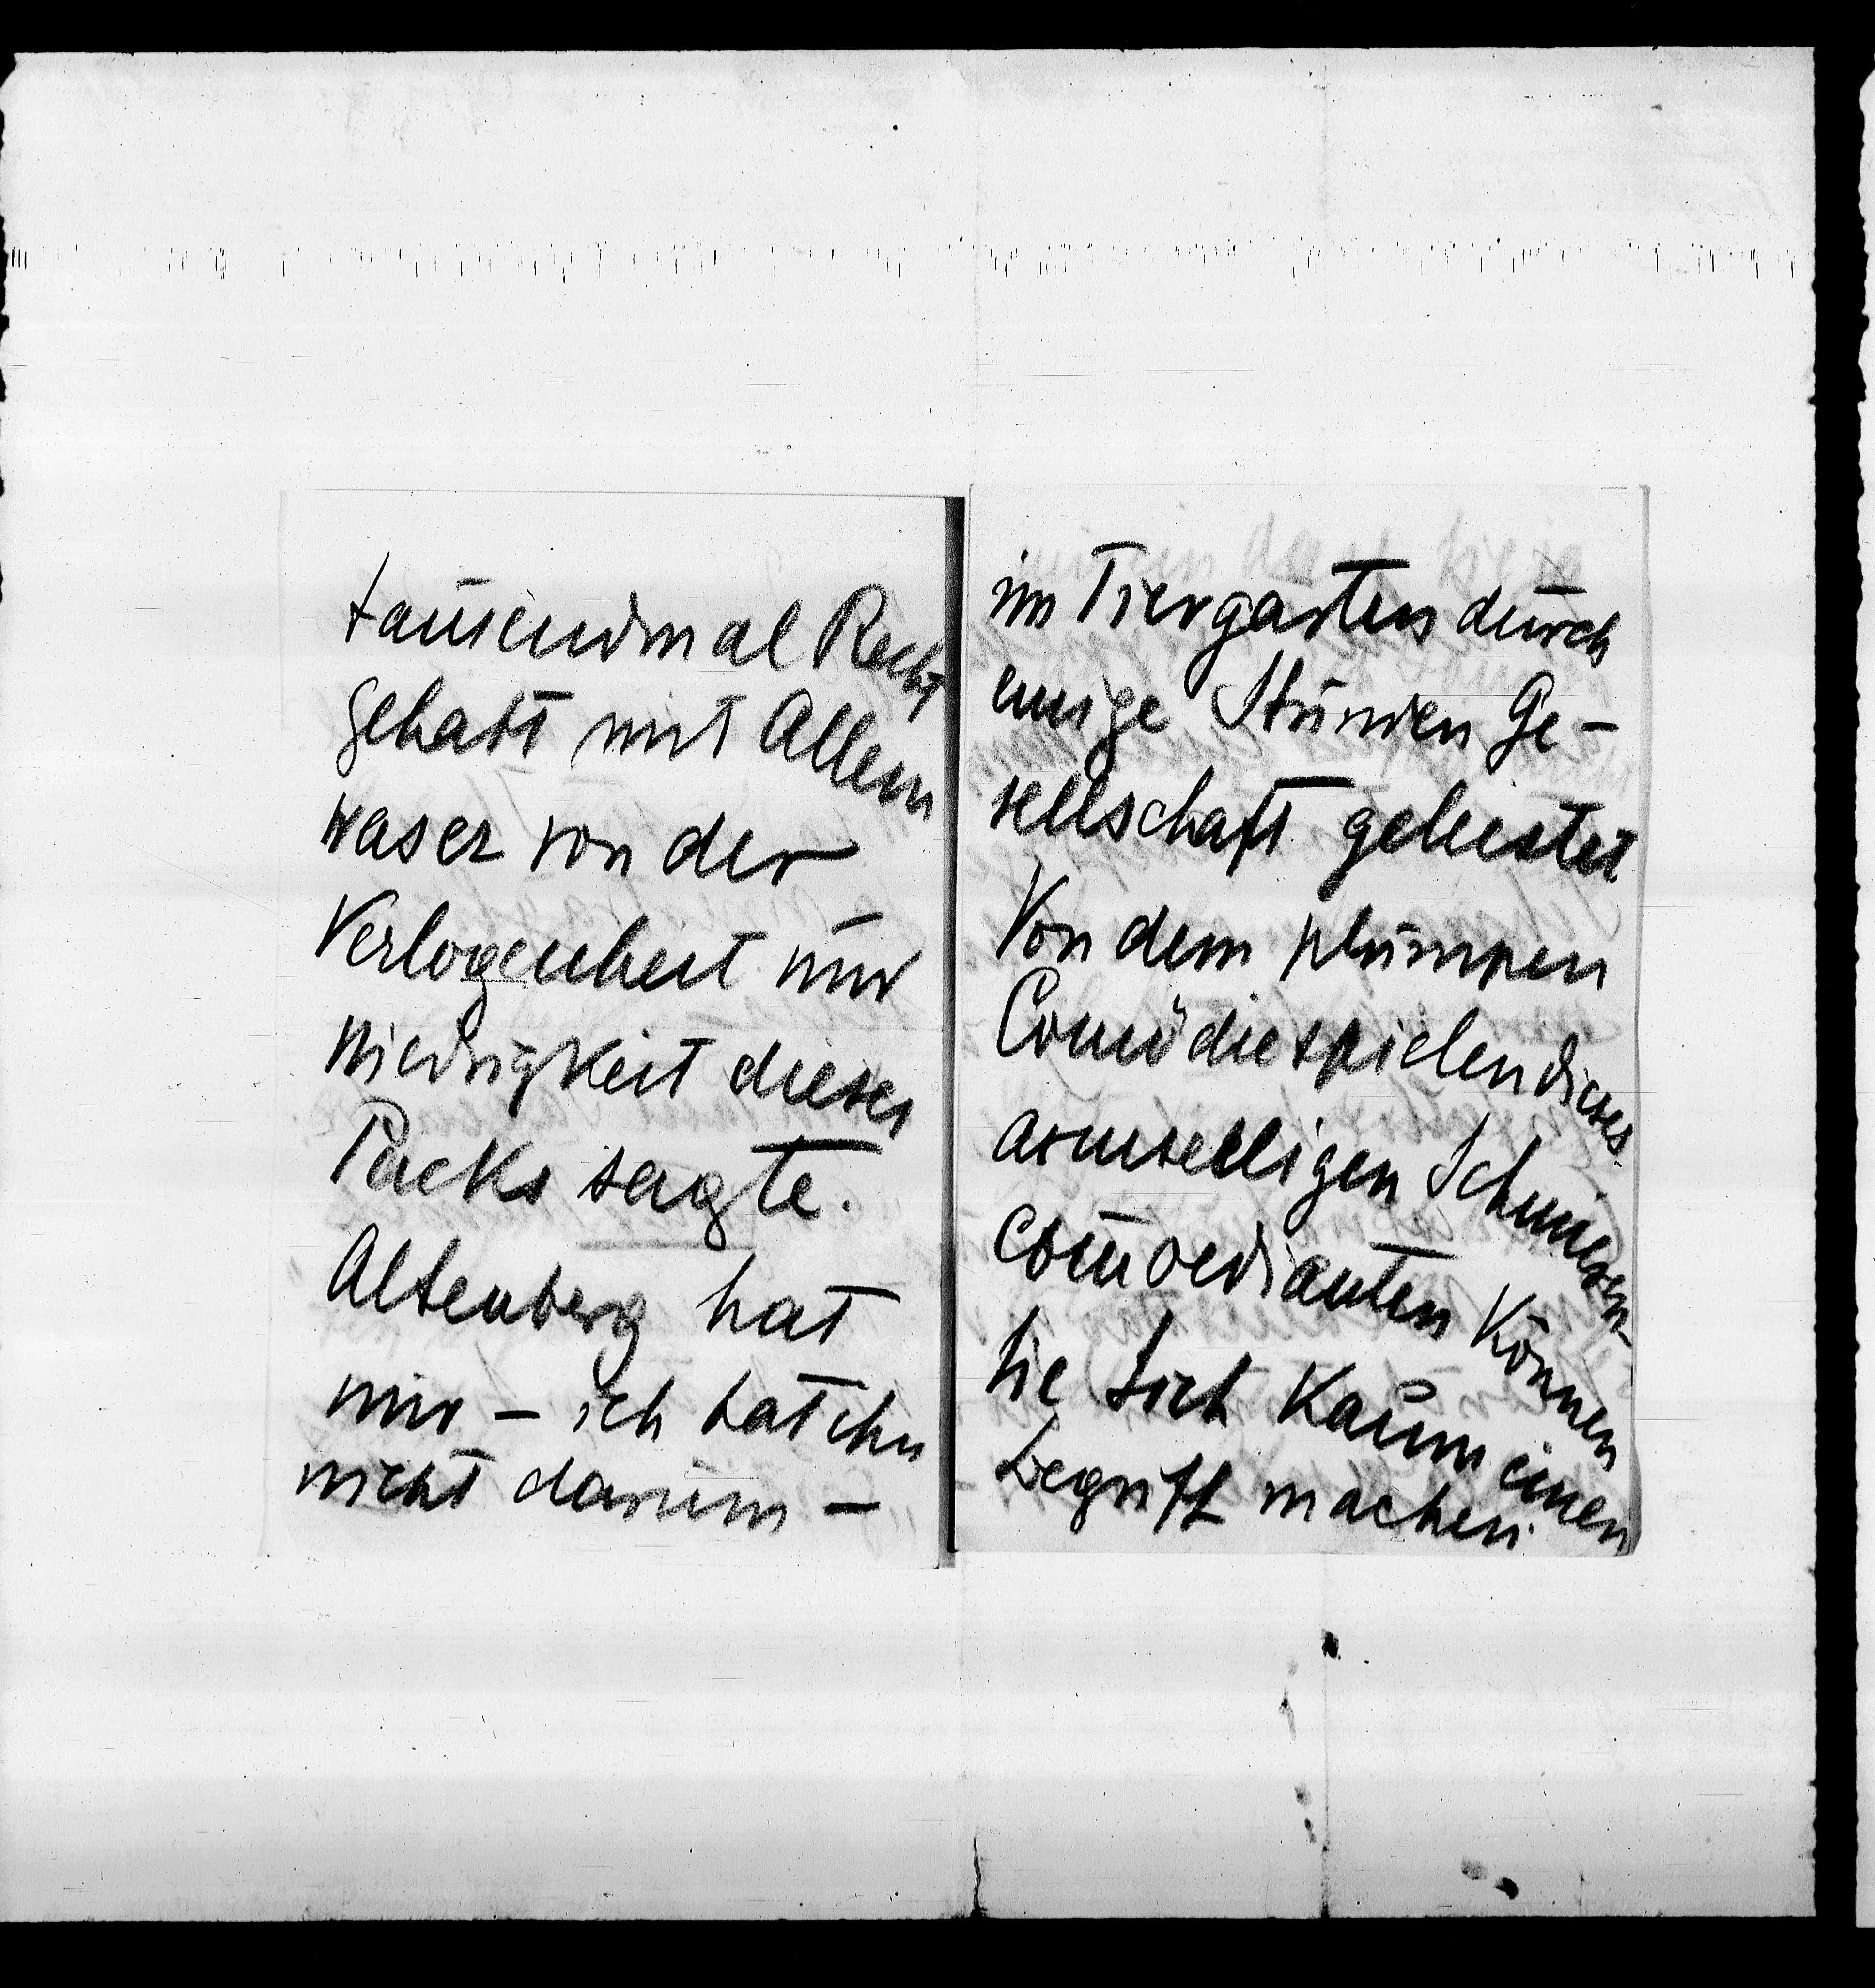 tausendmal Recht
gehabt mit Allem
was er von der
Verlogenheit und
Niedrigkeit dieses
Packs sagte.
Altenberg hat
mir – ich bat ihn
nicht darum –
im Tiergarten durch
einige Stunden Ge-
sellschaft geleistet
Von dem plumpen
Comödiespielen dieses
armseligen Schmieren-
comoedianten können
Sie sich kaum einen
Begriff machen.